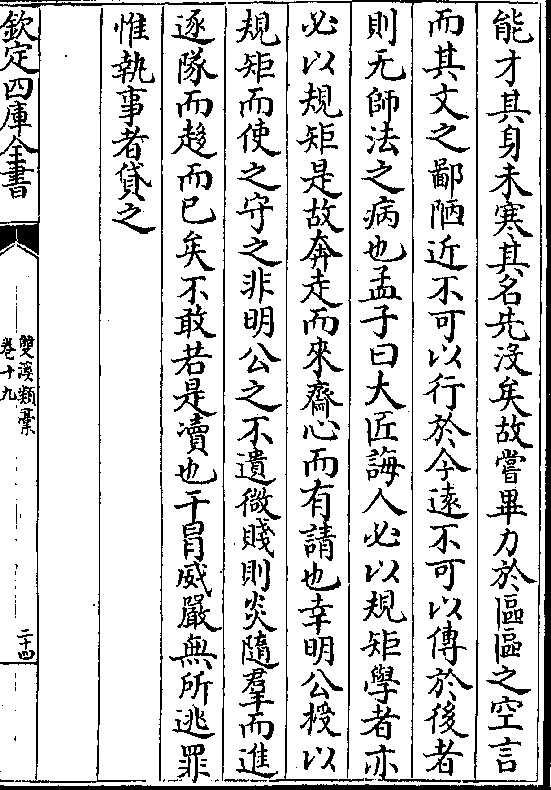 能才其身未寒其名先沒矣故嘗畢力於區區之空言
而其文之鄙陋近不可以行於今遠不可以傳於後者
則无師法之病也孟子曰大匠誨人必以規矩學者亦
必以規矩是故奔走而來齋心而有請也幸明公授以
規矩而使之守之非明公之不遺微賤則炎隨羣而進
逐隊而趍而已矣不敢若是瀆也干冒威嚴無所逃罪
惟執事者貸之
欽定四庫全書
雙溪類槀
卷十九
二十四